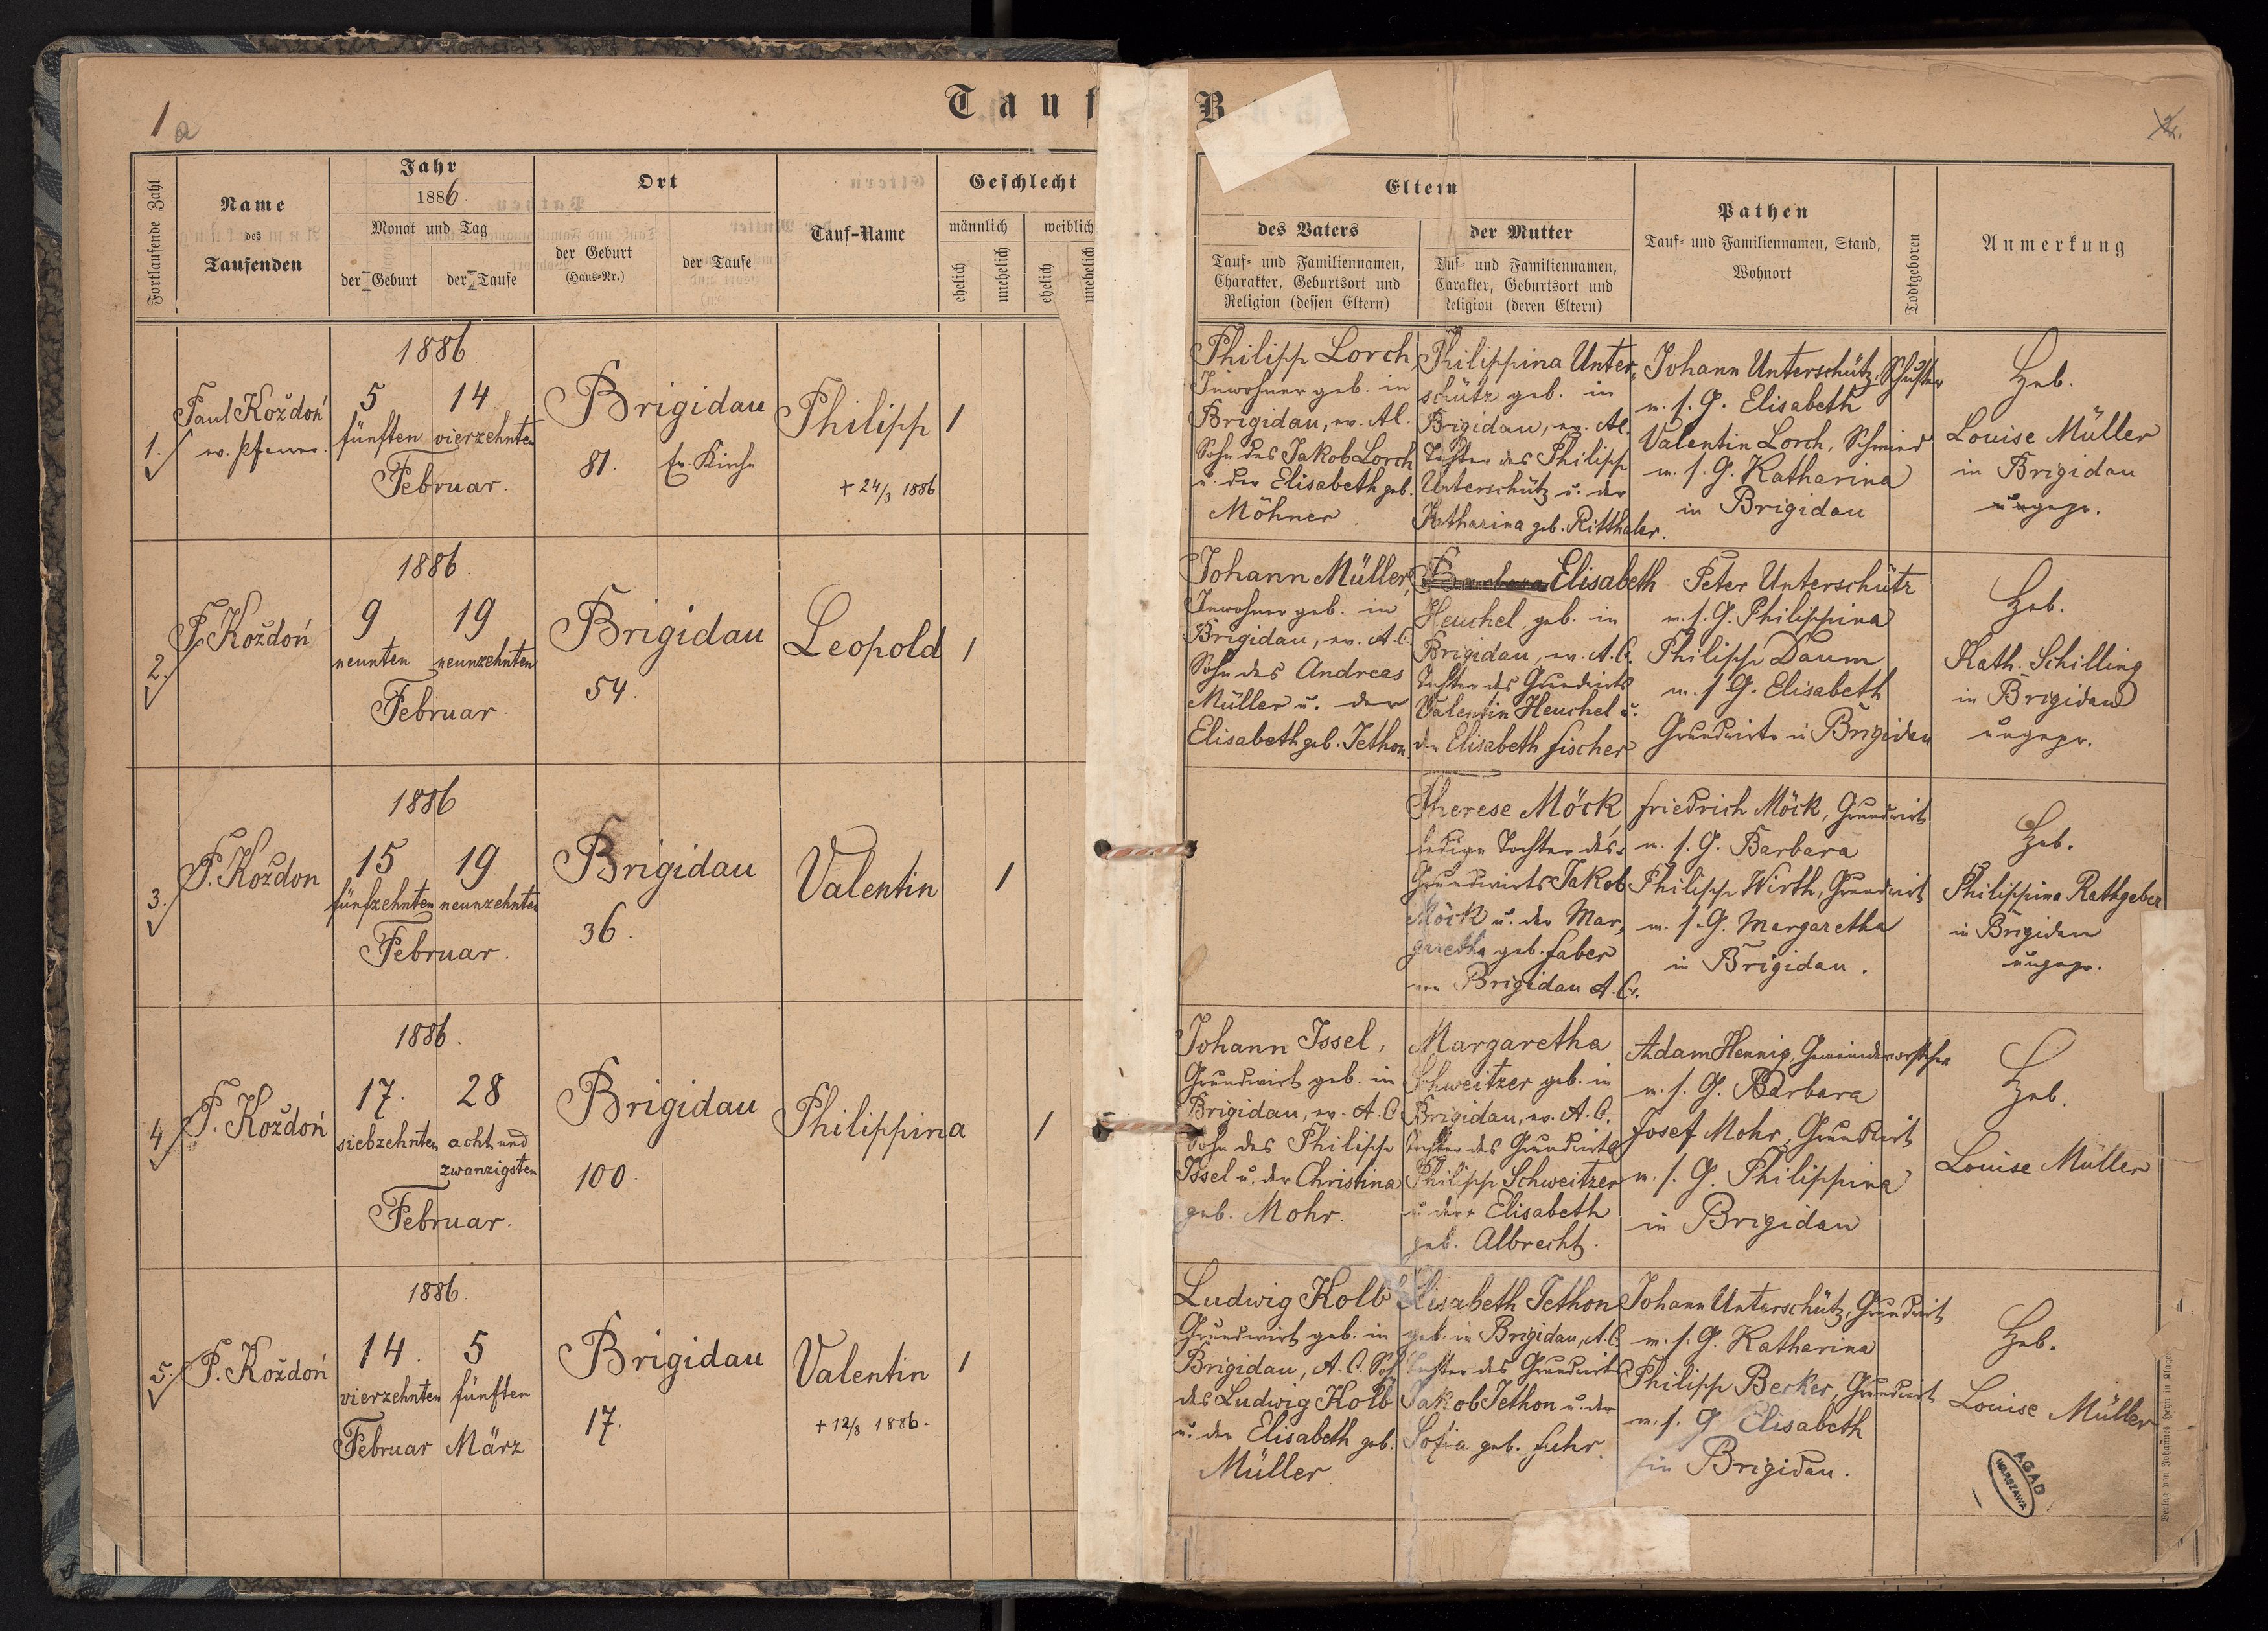 1 a
Tauf
B
2.
Fortlaufende Zahl
Name
des
Taufenden
Jahr
1886.
Monat und Tag
der Geburt
der Taufe
Ort
der Geburt
(Haus-Nr.)
der Taufe
Tauf-Name
Geschlecht
männlich
weiblich
ehelich
unehelich
ehelich
unehelich
Eltern
des Vaters
Tauf- und Familiennamen,
Charakter, Geburtsort und
Religion (dessen Eltern)
der Mutter
Tauf- und Familiennamen,
Carakter, Geburtsort und
Religion (deren Eltern)
Pathen
Tauf- und Familiennamen, Stand,
Wohnort
Todtgeboren
Anmerkung
1.
Paul Koždoń
ev. Pfarrer.
1886.
5 14
fünften vierzehnten
Februar.
Brigidau
81. Ev. Kirche
Philipp
+ 24/3 1886
1
Philipp Lorch,
Inwohner geb. in
Brigidau, ev. A.C.
Sohn des Jakob Lorch
u. der Elisabeth geb.
Möhner
Philippina Unter-
schütz geb. in
Brigidau, ev. A.C.
Tochter des Philipp
Unterschütz u. der
Katharina geb. Ritthaler.
Johann Unterschütz, Schuster
m. s. G. Elisabeth
Valentin Lorch, Schmied
m. s. G. Katharina
in Brigidau
Heb.
Louise Müller
in Brigidau
ungepr.
2.
P. Koždoń
1886.
9 19
neunten neunzehnten
Februar.
Brigidau
54.
Leopold
1
Johann Müller,
Inwohner geb. in
Brigidau, ev. A.C.
Sohn des Andreas
Müller u. der
Elisabeth geb. Jethon.
Barbara Elisabeth
Heuchel, geb. in
Brigidau, ev. A.C.
Tochter des Grundwirts
Valentin Heuchel u.
der Elisabeth Fischer
Peter Unterschütz
m. s. G. Philippina
Philipp Daum
m. s. G. Elisabeth
Grundwirte in Brigidau
Heb.
Kath. Schilling
in Brigidau
ungepr.
3.
P. Koždon
1886
15 19
fünfzehnten neunzehnten
Februar.
Brigidau
36.
Valentin
1
Therese Möck
ledige Tochter des
Grundwirts Jakob
Möck u. der Mar-
garetha geb. Faber
von Brigidau A.C.
Friedrich Möck, Grundwirt
m. s. G. Barbara
Philipp Wirth, Grundwirt
m. s. G. Margaretha
in Brigidau.
Heb.
Philippina Rathgeber
in Brigidau
ungepr.
4
P. Koždoń
1886.
17. 28
siebzehnten acht und
zwanzigsten
Februar.
Brigidau
100.
Philippina
1
Johann Issel,
Grundwirt geb. in
Brigidau, ev. A.C.
Sohn des Philipp
Issel u. der Christina
geb. Mohr.
Margaretha
Schweitzer geb. in
Brigidau, ev. A.C.
Tochter des Grundwirts
Philipp Schweitzer
u. der + Elisabeth
geb. Albrecht.
Adam Hennig, Gemeindevorsteher
m. s. G. Barbara
Josef Mohr, Grundwirt
m. s. G. Philippina
in Brigidau
Heb.
Louise Müller
5.
P. Koždoń
1886.
14. 5
vierzehnten fünften
Februar März
Brigidau
17.
Valentin
+ 12/8 1886.
1
Ludwig Kolb
Grundwirt geb. in
Brigidau, A.C. Sohn
des Ludwig Kolb
u. der Elisabeth geb.
Müller
Elisabeth Jethon
geb. in Brigidau, A.C.
Tochter des Grundwirts
Jakob Jethon u. der
Sofia geb. Fuhr.
Johann Unterschütz, Grundwirt
m. s. G. Katharina
Philipp Berker, Grundwirt
m. s. G. Elisabeth
in Brigidau.
Heb.
Louise Müller
AGAD
WARSZAWA
Verlag von Johannes Heyn in Klagen